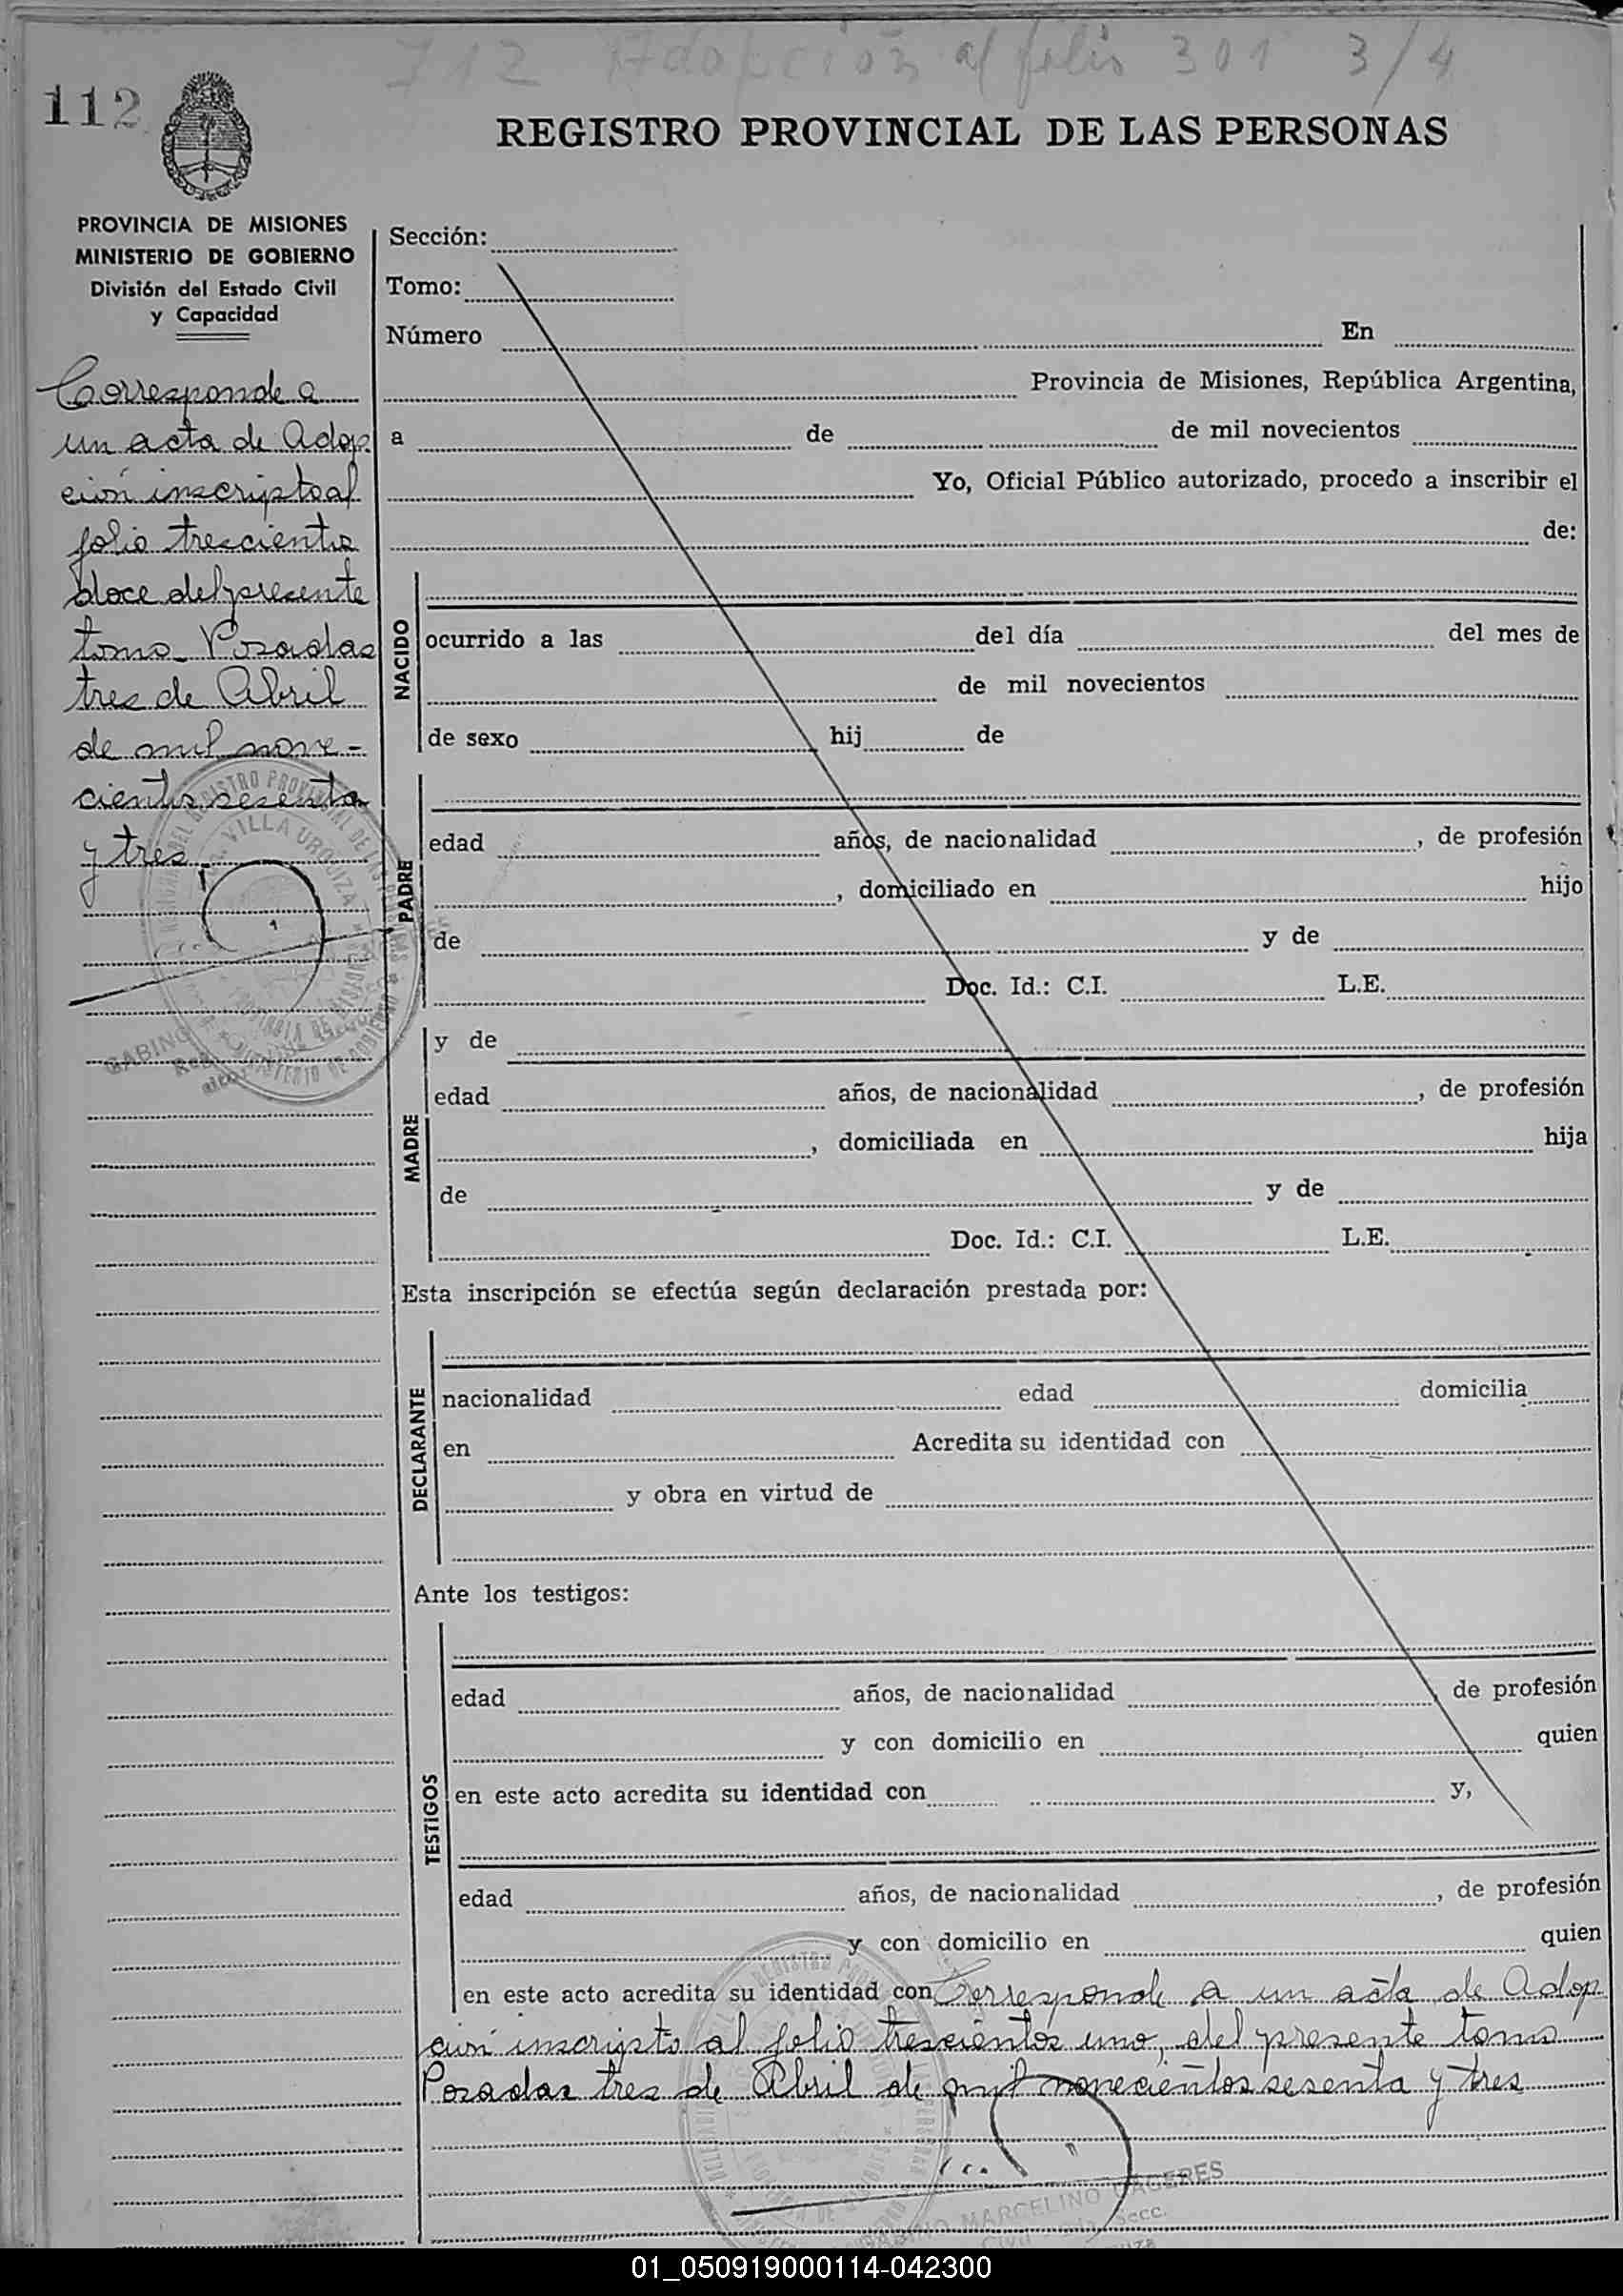 712 Adopción al folio 301 3/4
112
REGISTRO PROVINCIAL DE LAS PERSONAS
PROVINCIA DE MISIONES
MINISTERIO DE GOBIERNO
División del Estado Civil
y Capacidad
Corresponde a
un acta de Adop
ción inscripto al
folio trescientos
doce del presente
tomo Posadas
tres de Abril
de mil nove-
cientos sesenta
y tres
Sección:
Tomo:
Número En
Provincia de Misiones, República Argentina,
a de de mil novecientos
Yo, Oficial Público autorizado, procedo a inscribir el
de:
NACIDO
ocurrido a las del día del mes de
de mil novecientos
de sexo hij de
PADRE
edad años, de nacionalidad , de profesión
, domiciliado en hijo
de y de
Doc. Id.: C.I. L.E.
MADRE
y de
edad años, de nacionalidad , de profesión
, domiciliada en hija
de y de
Doc. Id.: C.I. L.E.
Esta inscripción se efectúa según declaración prestada por:
DECLARANTE
nacionalidad edad domicilia
en Acredita su identidad con
y obra en virtud de
Ante los testigos:
TESTIGOS
edad años, de nacionalidad , de profesión
y con domicilio en quien
en este acto acredita su identidad con y,
edad años, de nacionalidad , de profesión
y con domicilio en quien
en este acto acredita su identidad con Corresponde a un acta de Adop
ción inscripto al folio trescientos uno, del presente tomo
Posadas tres de Abril de mil novecientos sesenta y tres
MARCELINO CACERES
01_050919000114-042300